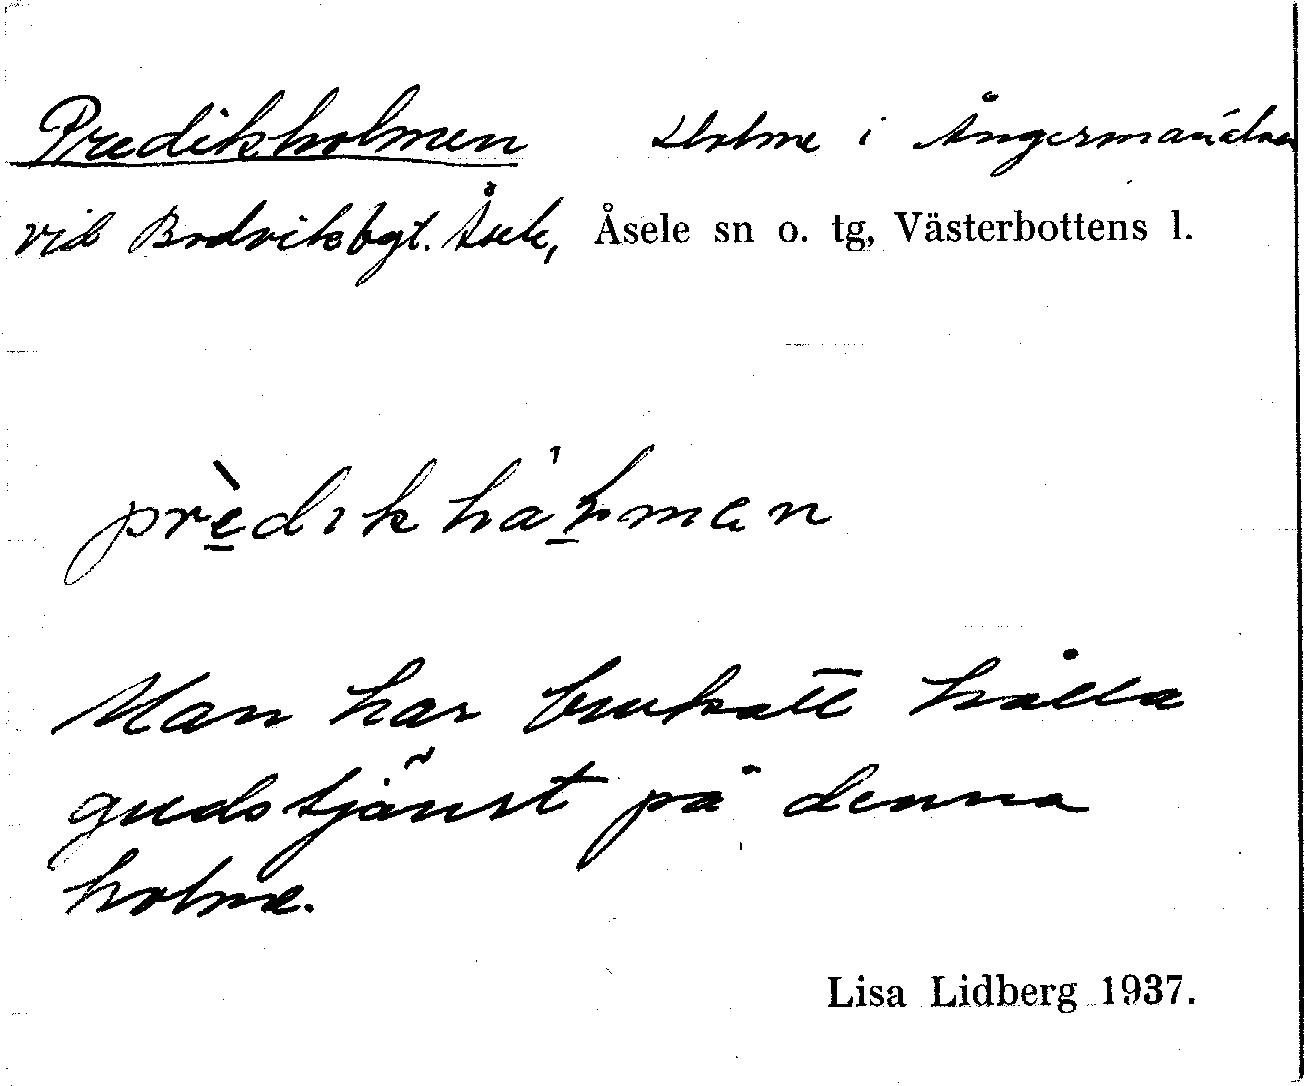 Predikholmen Holme i Ångermanälven
vid Brdviksbgt. Åsele, Åsele sn o. tg, Västerbottens l.
prèdikhåḷman
Man har brukatt hålla
gudstjänst på denna
holme.
Lisa Lidberg 1937.